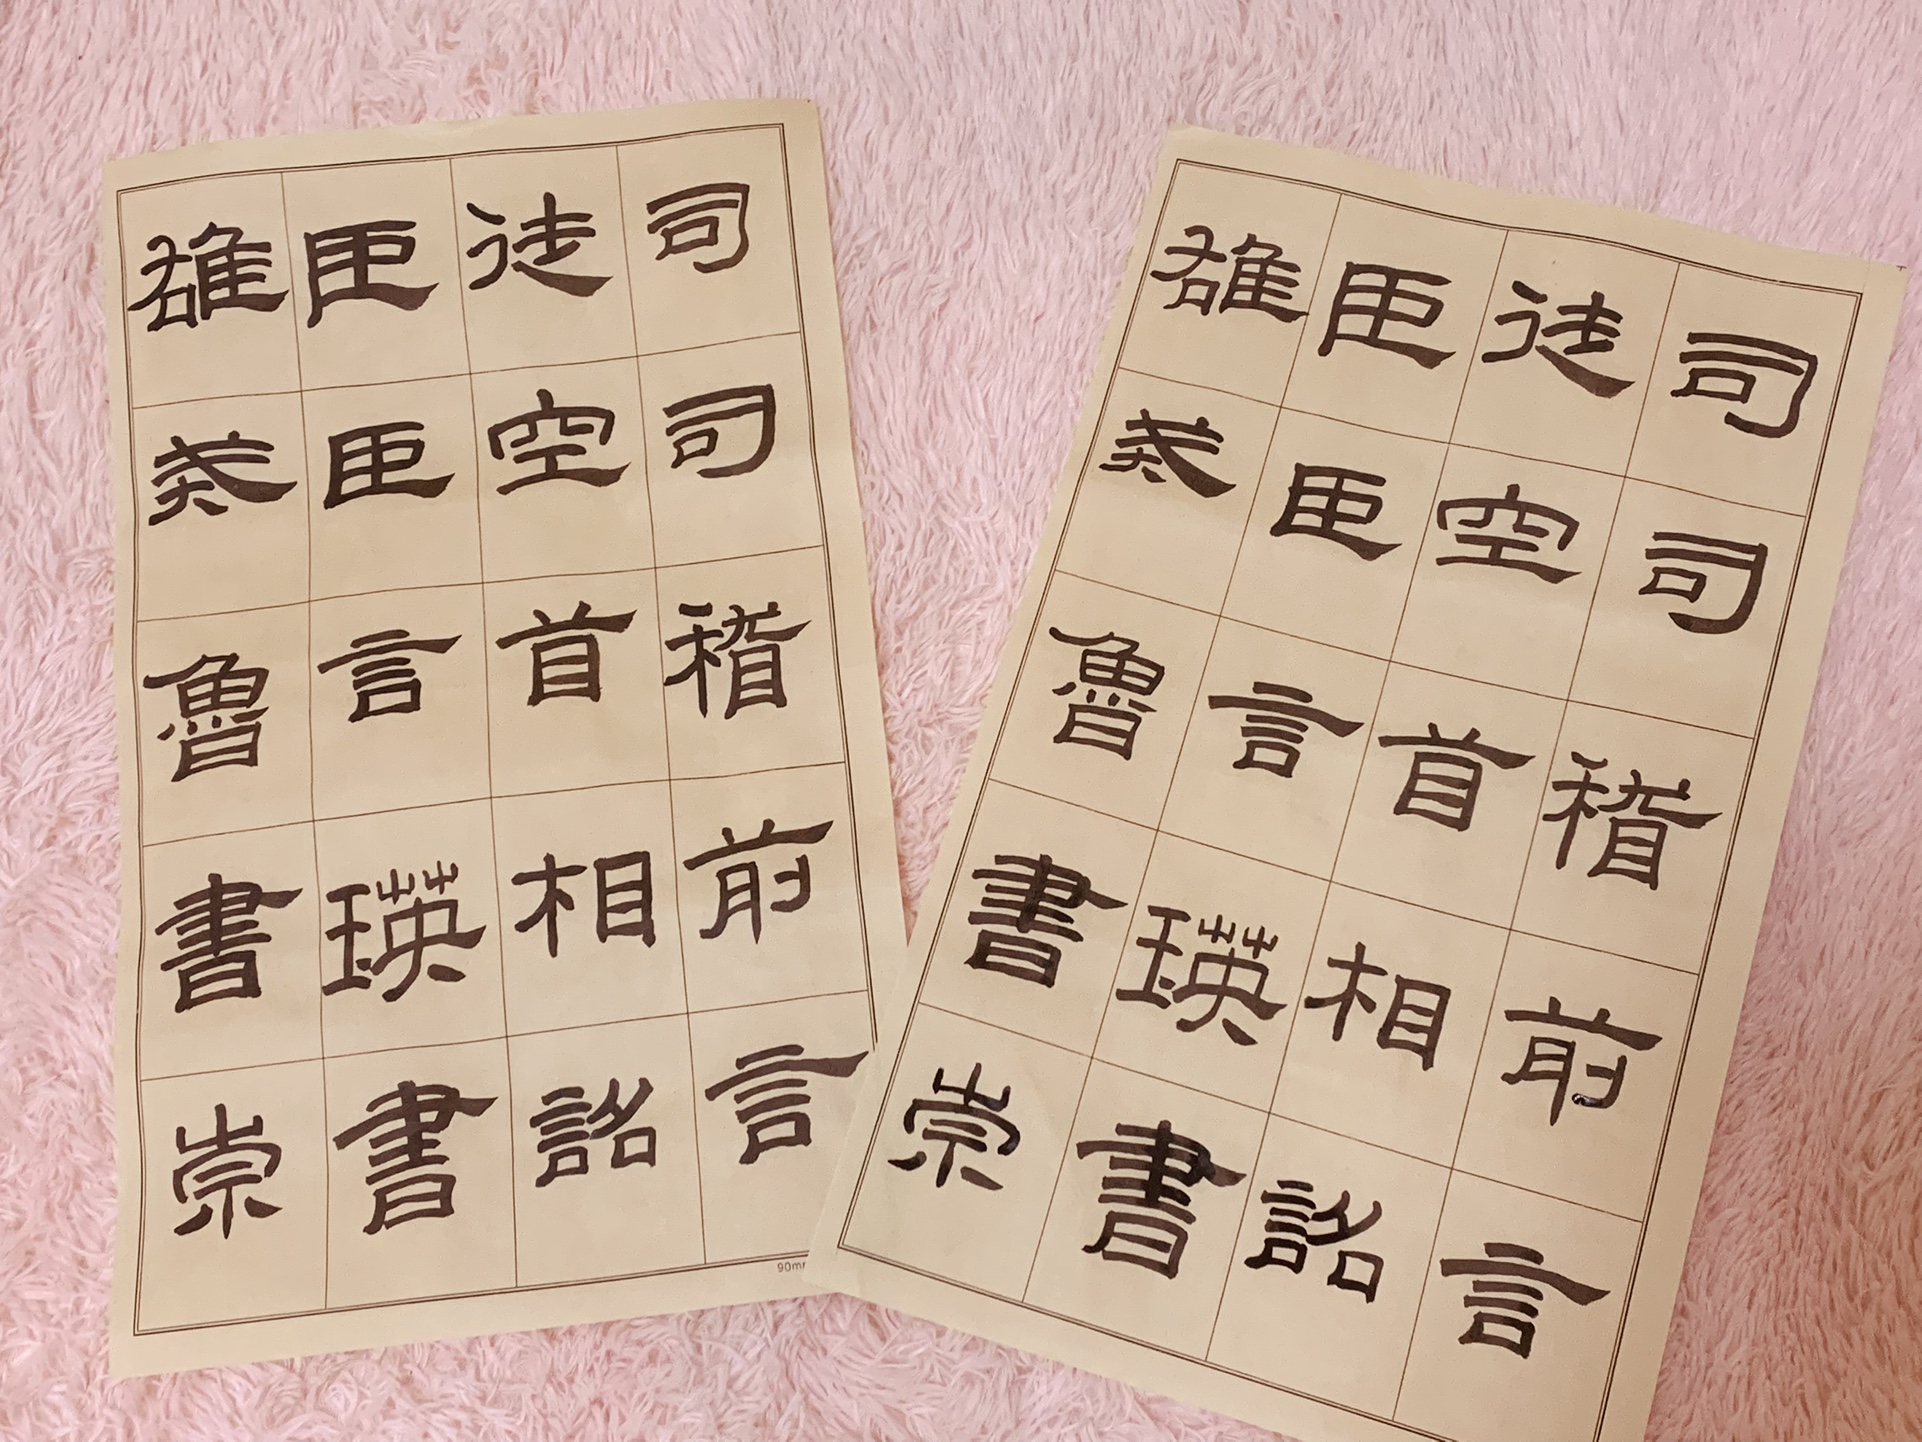 司徒臣雄
司空臣戒
稽首言魯
前相瑛書
言詔書崇
90m
司徒臣雄
司空臣戒
稽首言魯
前相瑛書
言詔書崇